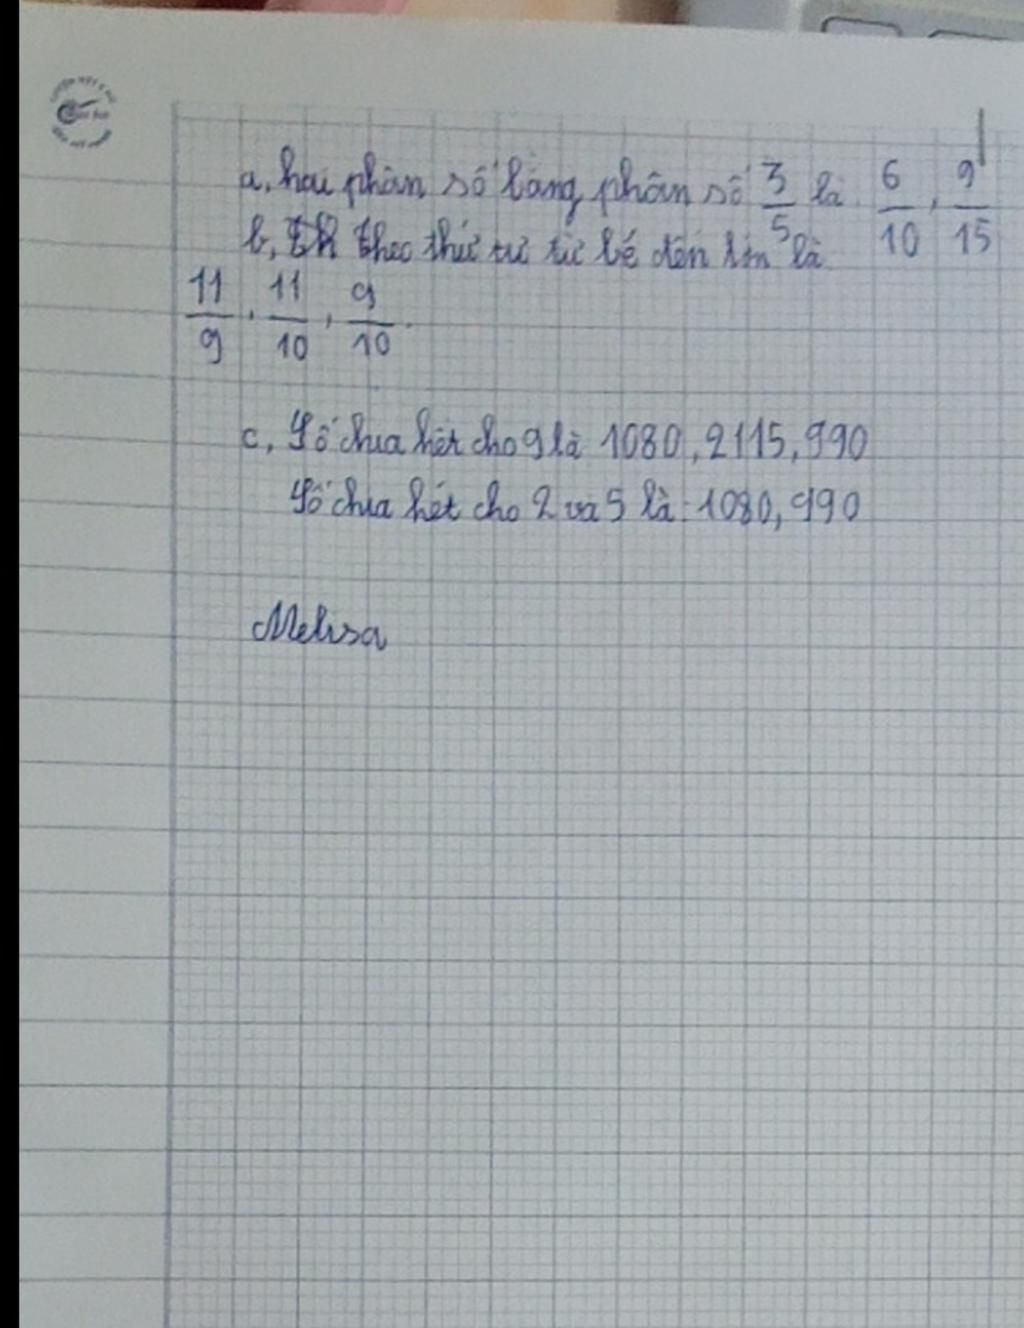 a, hai phân số bằng phân số 3/5 là 6/10, 9/15
b, theo thứ tự từ bé đến lớn là
11/9, 11/10, 9/10.
c, Số chia hết cho 9 là 1080, 2115, 990
Số chia hết cho 2 và 5 là: 1080, 990
Melisa